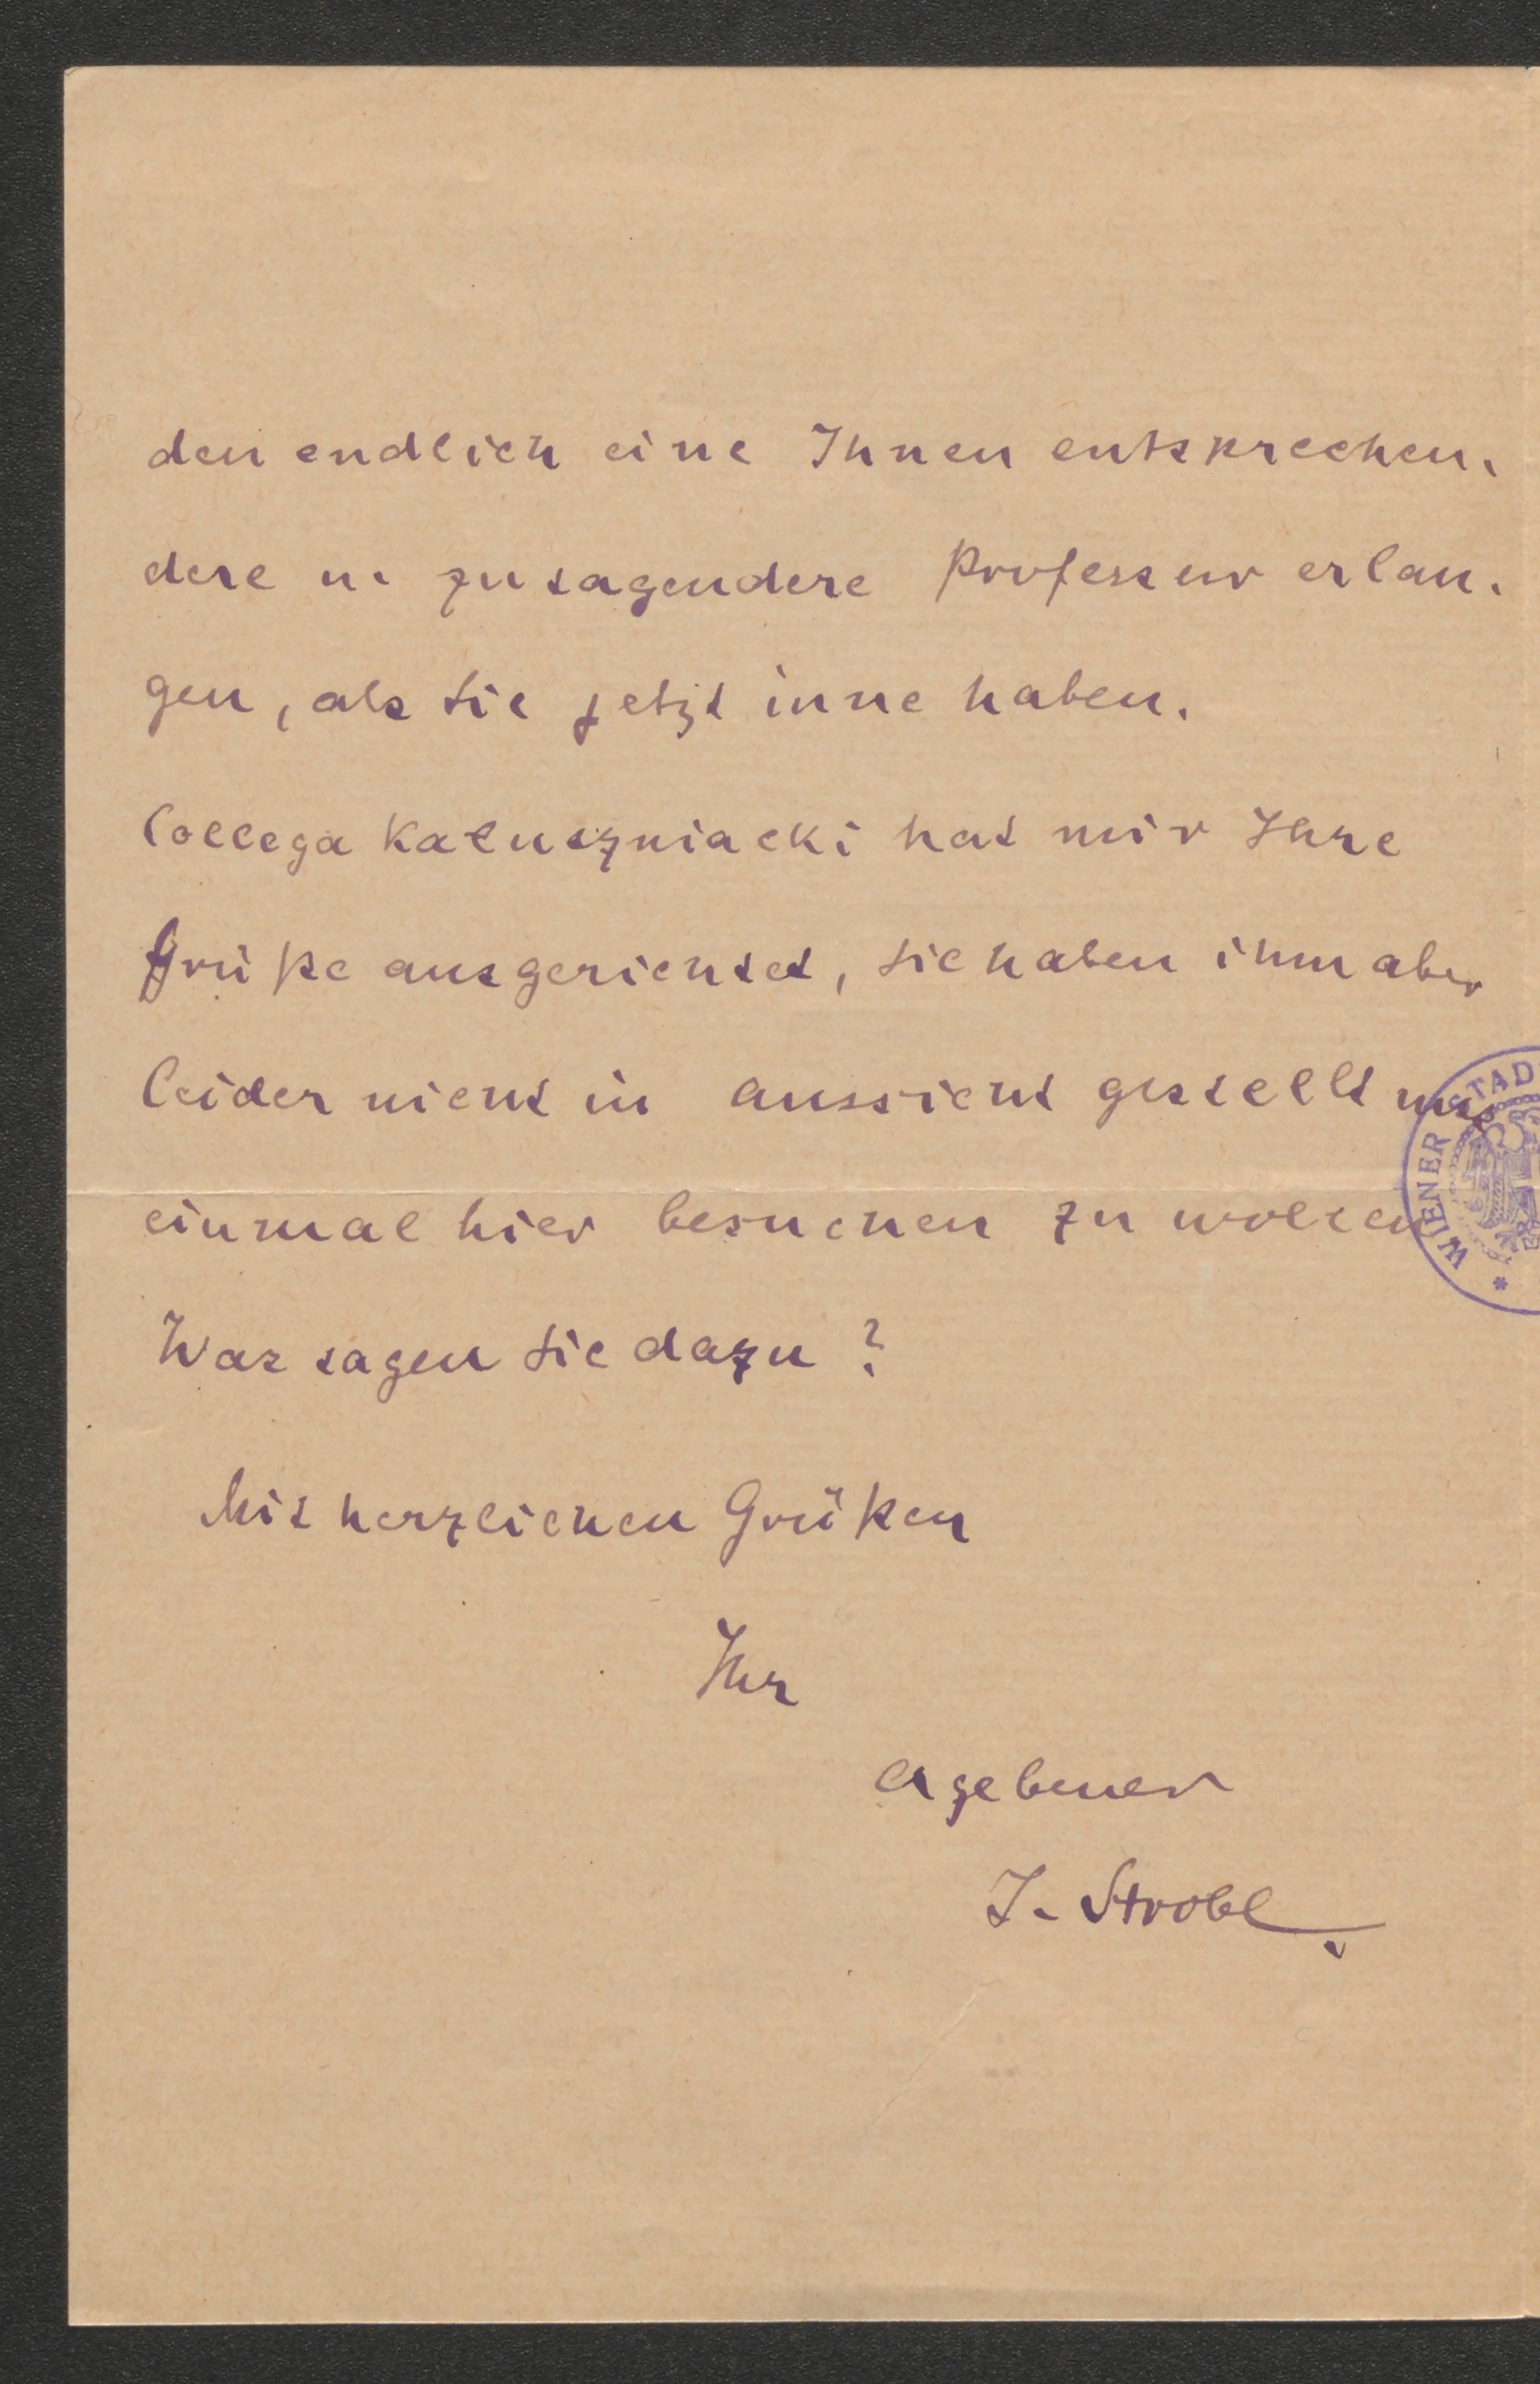 den endlich eine Ihnen entsprechen-
dere u. zusagendere Professur erlan-
gen, als Sie jetzt inne haben.
Collega Kałuzniacki hat mir Ihre
Grüße ausgerichtet, Sie haben ihm aber
leider nicht in aussicht gestellt uns
einmal hier besuchen zu wollen
Was sagen Sie dazu?
Mit herzlichen Grüßen
Ihr
ergebener
J. Strobl.
WIENER STAD